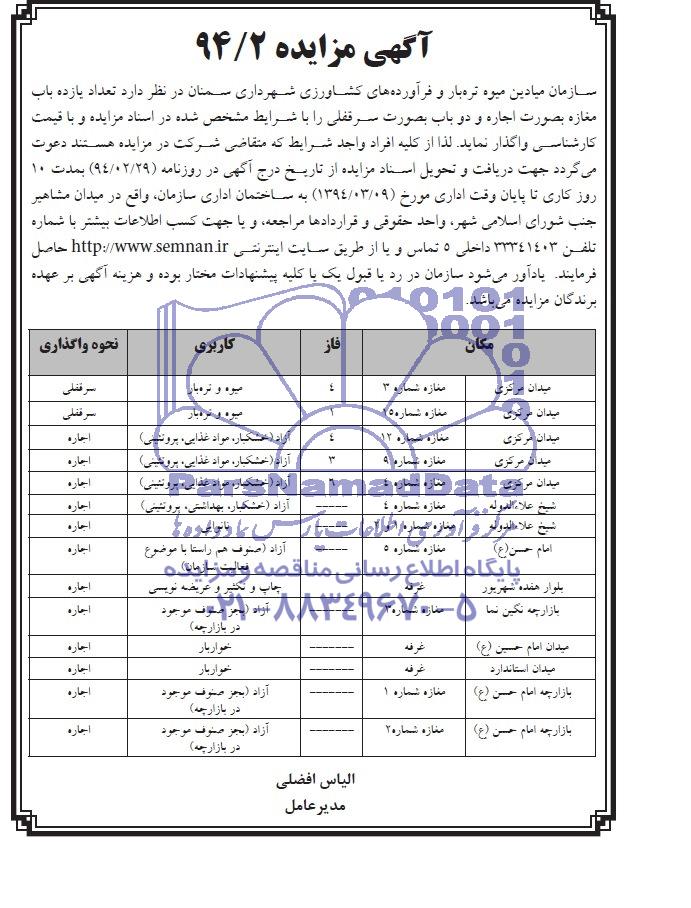 آگهی مزایده ۹۴/۲
سازمان میادین میوه تره‌بار و فرآورده‌های کشاورزی شهرداری سمنان در نظر دارد تعداد یازده باب
مغازه بصورت اجاره و دو باب بصورت سرقفلی را با شرایط مشخص شده در اسناد مزایده و با قیمت
کارشناسی واگذار نماید. لذا از کلیه افراد واجد شرایط که متقاضی شرکت در مزایده هستند دعوت
می‌گردد جهت دریافت و تحویل اسناد مزایده از تاریخ درج آگهی در روزنامه (۹۴/۰۲/۲۹) بمدت ۱۰
روز کاری تا پایان وقت اداری مورخ (۱۳۹۴/۰۳/۰۹) به ساختمان اداری سازمان، واقع در میدان مشاهیر
جنب شورای اسلامی شهر، واحد حقوقی و قراردادها مراجعه، و یا جهت کسب اطلاعات بیشتر با شماره
تلفن ۳۳۳۴۱۴۰۳ داخلی ۵ تماس و یا از طریق سایت اینترنتی http://www.semnan.ir حاصل
فرمایند. یادآور می‌شود سازمان در رد یا قبول یک یا کلیه پیشنهادات مختار بوده و هزینه آگهی بر عهده
برندگان مزایده می‌باشد.
مکان فاز کاربری نحوه واگذاری
میدان مرکزی مغازه شماره ۳ ۴ میوه و تره‌بار سرقفلی
میدان مرکزی مغازه شماره۲۵ ۱ میوه و تره‌بار سرقفلی
میدان مرکزی مغازه شماره ۱۲ ۴ آزاد(خشکبار، مواد غذایی، پروتئینی) اجاره
میدان مرکزی مغازه شماره ۹ ۳ آزاد(خشکبار، مواد غذایی، پروتئینی) اجاره
میدان مرکزی مغازه شماره ۴ ۶ آزاد(خشکبار، مواد غذایی، پروتئینی) اجاره
شیخ علاءالدوله مغازه شماره ۴ ----- آزاد (خشکبار، بهداشتی، پروتئینی) اجاره
شیخ علاءالدوله مغازه شماره ۱ و ۲ ----- نانوایی اجاره
امام حسن(ع) مغازه شماره ۵ ----- آزاد (صنوف هم راستا با موضوع اجاره
فعالیت سازمان)
بلوار هفده شهریور غرفه چاپ و تکثیر و عریضه نویسی اجاره
بازارچه نگین نما مغازه شماره۳ ------- آزاد (بجز صنوف موجود اجاره
در بازارچه)
میدان امام حسین (ع) غرفه ------- خواربار اجاره
میدان استاندارد غرفه ------- خواربار اجاره
بازارچه امام حسن (ع) مغازه شماره ۱ ------- آزاد (بجز صنوف موجود اجاره
در بازارچه)
بازارچه امام حسن (ع) مغازه شماره۲ ------- آزاد (بجز صنوف موجود اجاره
در بازارچه)
الیاس افضلی
مدیرعامل
ParsNamadData
مرکز فرآوری اطلاعات پارس نماد داده‌ها
پایگاه اطلاع رسانی مناقصه و مزایده
۰۲۱-۸۸۳۴۹۶۷۰-۵